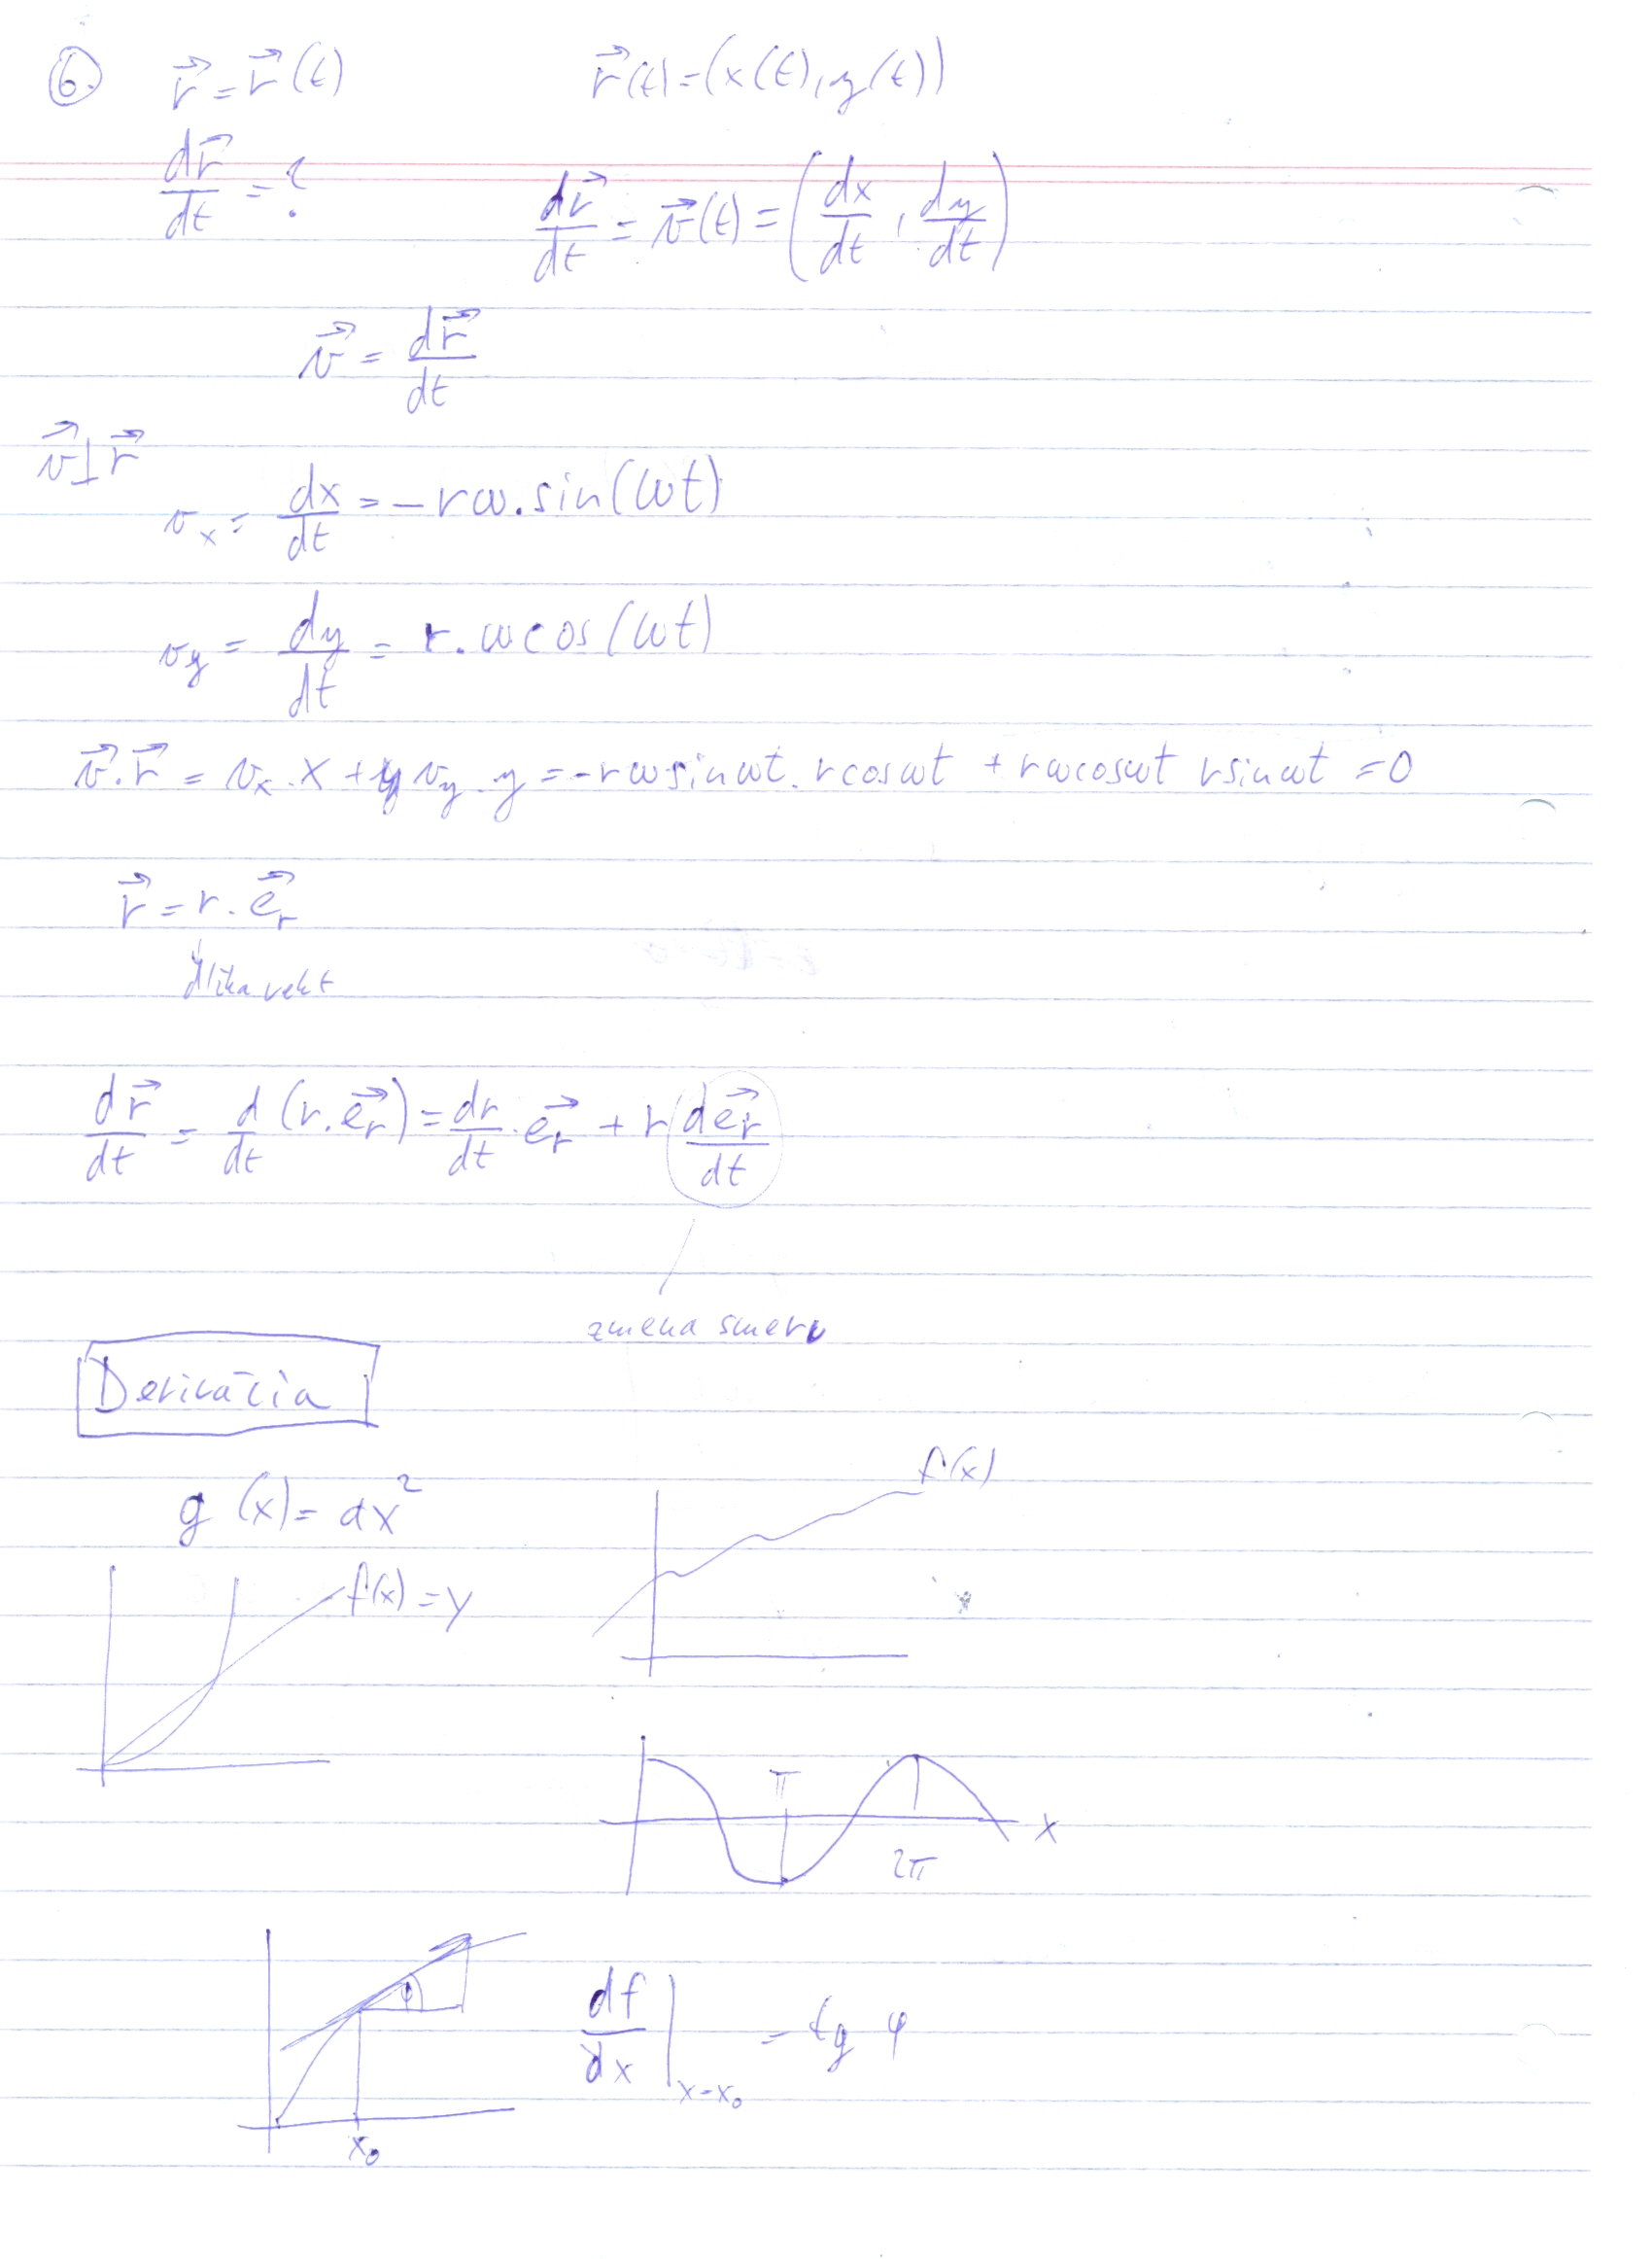 6. r⃗ = r⃗(t)   r⃗(t) = (x(t), y(t))
dr⃗/dt = ?   dr⃗/dt = v⃗(t) = (dx/dt, dy/dt)
v⃗ = dr⃗/dt
v⃗ ⊥ r⃗
v_x = dx/dt = -rω.sin(ωt)
v_y = dy/dt = r.ωcos(ωt)
v⃗.r⃗ = v_x.x + v_y.y = -rωsinωt.rcosωt + rωcosωt rsinωt = 0
r⃗ = r.e⃗_r
dĺžka vekt
dr⃗/dt = d/dt (r.e⃗_r) = dr/dt.e⃗_r + r de⃗_r/dt
zmena smeru
Derivácia
g(x) = ax²   f(x)
f(x) = y
π
x
2π
φ
df/dx |x=x₀ = tg φ
x₀